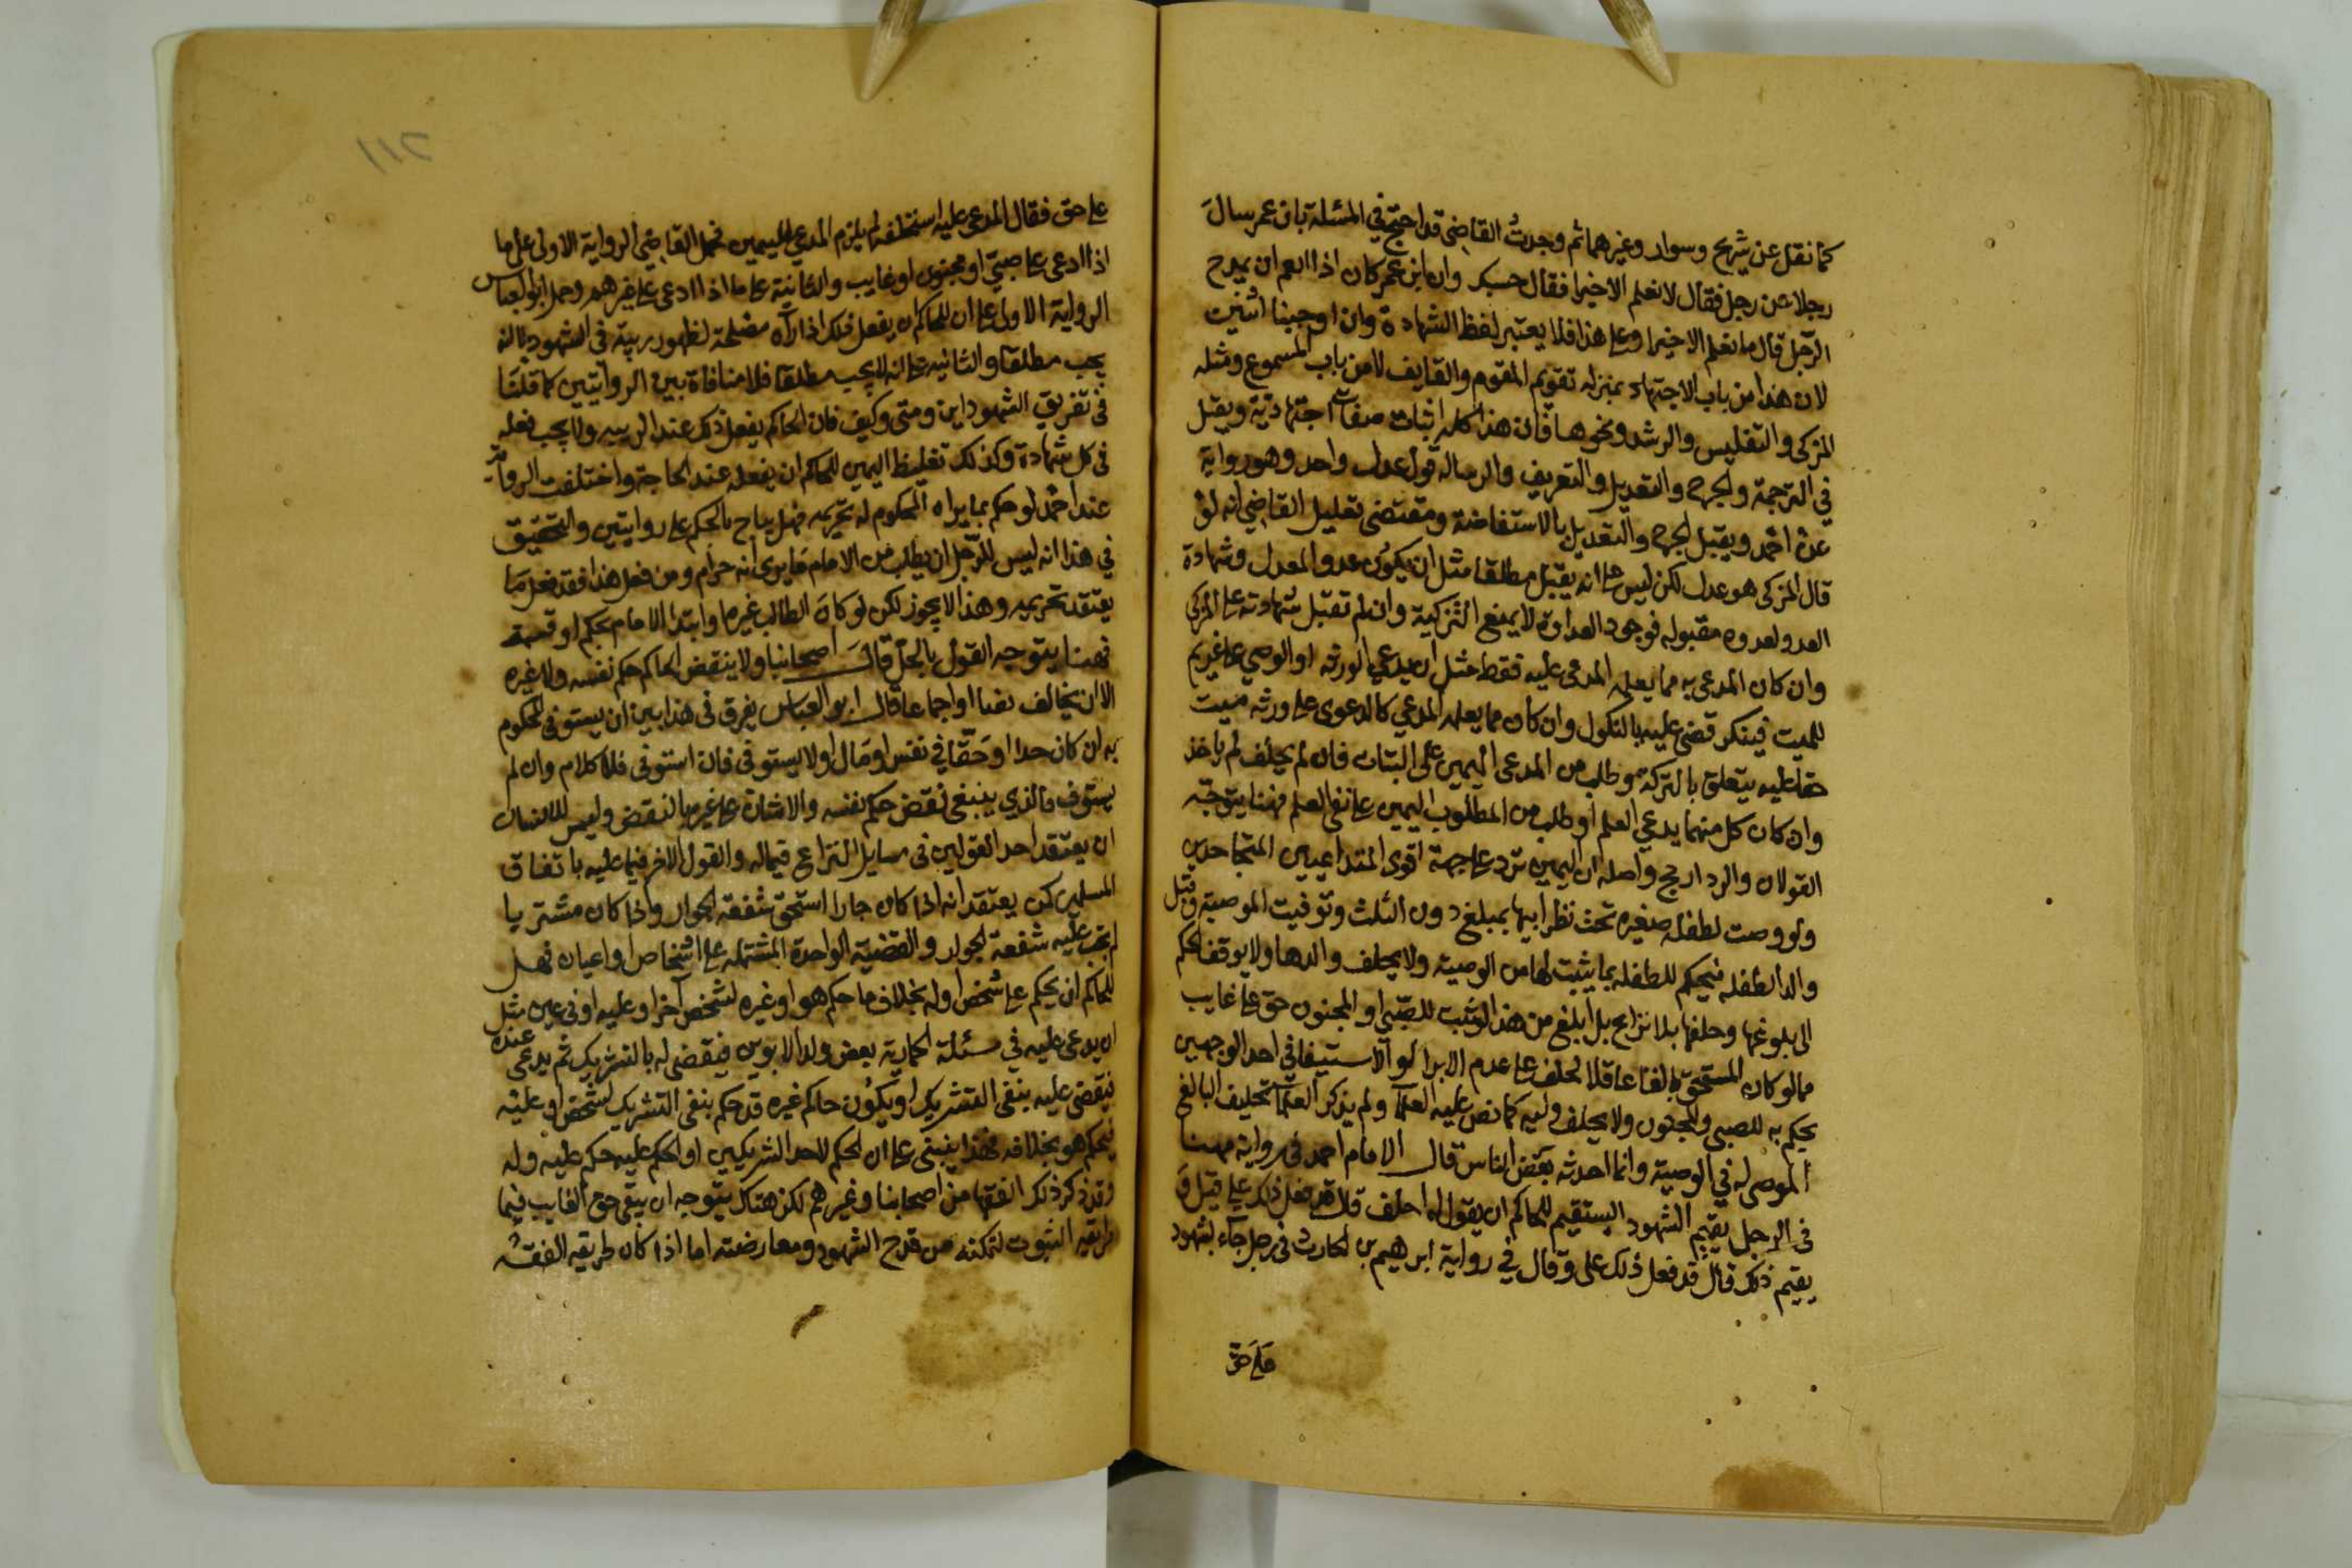 كما نقل عن شريح وسوار وغيرهما ثم وجدتُ القاضي قد احتج في المسئلة بان عمر سال
رجلا عن رجل فقال لا نعلم الا خيرا فقال حسبك وان ابن عمر كان اذا انعم ان يمدح
الرجل قال ما نعلم الا خيرا وعلى هذا فلا يعتبر لفظ الشهادة وان اوجبنا اثنين
لان هذا من باب الاجتهاد بمنزلة تقويم المقوم والقايف لا من باب المسموع ومثله
المزكى والتفليس والرشد ونحوها فان هذا كله اثبات صفات اجتهادية ويقبل
في الترجمة والجرح والتعديل والتعريف والرسالة قول عدل واحد وهو رواية
عن احمد ويقبل الجرح والتعديل بالاستفاضة ومقتضى تعليل القاضي انه لو
قال المزكى هو عدل لكن ليس على انه يقبل مطلقا مثل ان يكون عدو المعدل وشهادة
العدو لعدوه مقبولة فوجود العداوة لا يمنع التزكية وان لم تقبل شهادته على المزكى
وان كان المدعى به مما يعلمه المدعى عليه فقط مثل ان يدعي الورثة او الوصي على غريم
للميت فينكر قضى عليه بالنكول وان كان مما يعلمه المدعي كالدعوى على ورثة ميت
حقا عليه يتعلق بالتركة وطلب من المدعى اليمين على البتات فان لم يحلف لم ياخذ
وان كان كل منهما يدعي العلم او طلب من المطلوب اليمين على نفى العلم فهنا يتوجه
القولان والرد ارجح واصله ان اليمين ترد على جهة اقوى المتداعيين المتجاحدين
ولو وصت لطفلة صغيرة تحت نظر ابيها بمبلغ دون الثلث وتوفيت الموصية وقبل
والد الطفلة فيحكم للطفلة بما يثبت لها من الوصية ولا يحلف والدها ولا يوقف الحكم
الى بلوغها وحلفها بلا نزاع بل ابلغ من هذا لو ثبت للصبي او المجنون حق على غايب
مما لو كان المستحق بالغا عاقلا لحلف على عدم الابرا لو الاستيفا في احد الوجهين
يحكم به للصبي والمجنون ولا يحلف وليه كما نص عليه العلما ولم يذكر العلما تحليف البالغ
الموصى له في الوصية وانما احدثه بعض الناس قال الامام احمد في رواية مهنا
في الرجل يقيم الشهود ايستقيم للحاكم ان يقول له احلف قال قد فعل ذلك علي قيل و
يقيم ذلك قال قد فعل ذلك على وقال في رواية ابرهيم بن الحارث في رجل جاء بشهود
على حق
على حق فقال المدعى عليه استحلفه لم يلزم المدعي اليمين فحمل القاضي الرواية الاولى على ما
اذا ادعى على صبي او مجنون او غايب والثانية على ما اذا ادعى على غيرهم وحمل ابو العباس
الرواية الاولى على ان للحاكم ان يفعل ذلك اذا رآه مصلحة لظهور ريبة في الشهود لا انه
يجب مطلقا والثانية على انه لا يجب مطلقا فلا منافاة بين الروايتين كما قلنا
في تفريق الشهود اين ومتى وكيف فان الحاكم يفعل ذلك عند الريبة ولا يجب فعله
في كل شهادة وكذلك تغليظ اليمين للحاكم ان يفعله عند الحاجة واختلفت الرواية
عند احمد لو حكم بما يراه المحكوم له تحريمه فهل يباح بالحكم على روايتين والتحقيق
في هذا انه ليس للرجل ان يطلب من الامام ما يرى انه حرام ومن فعل هذا فقد فعل ما
يعتقد تحريمه وهذا لا يجوز لكن لو كان الطالب غيره او ابتدا الامام بحكم او قسمة
فهنا يتوجه القول بالحل قال اصحابنا ولا ينقض الحاكم حكم نفسه ولا غيره
الا ان يخالف نصا او اجماعا قال ابو العباس يفرق في هذا بين ان يستوفي المحكوم
به ان كان حدا او حقا في نفس او مال او لا يستوفى فان استوفى فلا كلام وان لم
يستوف فالذي ينبغي نقض حكم نفسه والاشارة على غيره بالنقض وليس للانسان
ان يعتقد احد القولين في مسايل النزاع فيما له والقول الاخر فيما عليه باتفاق
المسلمين كمن يعتقد انه اذا كان جارا استحق شفعة الجوار واذا كان مشتريا
لم تجب عليه شفعة الجوار والقضية الواحدة المشتملة على اشخاص او اعيان فهل
للحاكم ان يحكم على شخص او له بخلاف ما حكم هو او غيره لشخص آخر او عليه او في عين مثل
ان يدعى عليه في مسئلة الحمارية بعض ولد الابوين فيقضى له بالتشريك ثم يدعى عنده
فيقضي عليه بنفي التشريك او يكون حاكم غيره قد حكم بنفى التشريك لشخص او عليه
فيحكم هو بخلافه فهذا ينبني على ان الحكم لاحد الشريكين او الحكم عليه حكم عليه وله
وقد ذكر ذلك الفقها من اصحابنا وغيرهم لكن هناك يتوجه ان يبقى حق الغايب فيما
طريقه الثبوت لتمكنه من قدح الشهود ومعارضته اما اذا كان طريقه الفقه